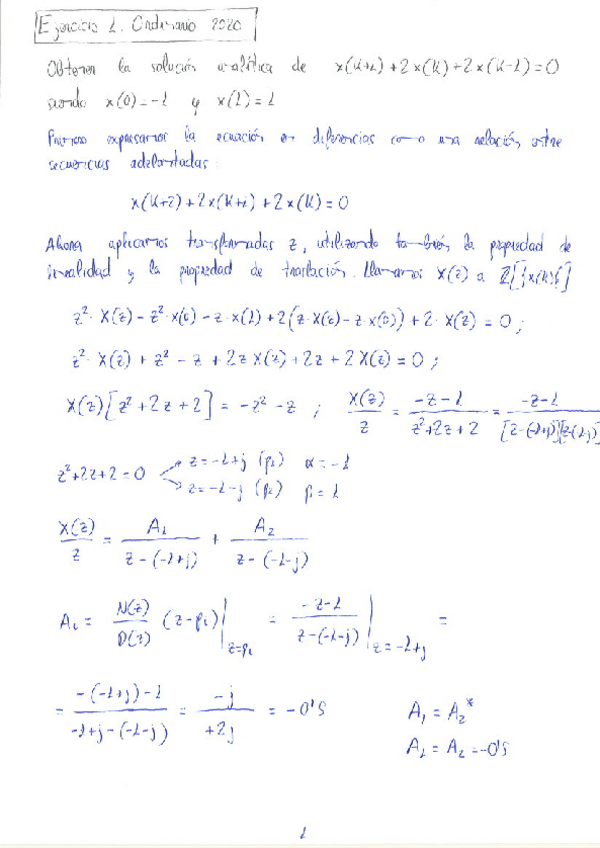 Ejercicio 1. Ordinario 2020
Obtener la solución analítica de x(k+1)+2x(k)+2x(k-1)=0
siendo x(0)=-1 y x(1)=1
Primero expresamos la ecuación en diferencias como una relación entre
secuencias adelantadas:
x(k+2)+2x(k+1)+2x(k)=0
Ahora aplicamos transformadas z, utilizando también la propiedad de
linealidad y la propiedad de traslación. Llamamos X(z) a Z[{x(k)}]
z²·X(z)-z²·x(0)-z·x(1)+2(z·X(z)-z·x(0))+2·X(z)=0;
z²·X(z)+z²-z+2zX(z)+2z+2X(z)=0;
X(z)[z²+2z+2]=-z²-z ; X(z)/z = (-z-1)/(z²+2z+2) = (-z-1)/([z-(-1+j)][z-(-1-j)]
z²+2z+2=0 z=-1+j (p₁) α=-1
z=-1-j (p₂) β=1
X(z)/z = A₁/(z-(-1+j)) + A₂/(z-(-1-j))
A₁ = N(z)/D(z) (z-p₁)|z=p₁ = (-z-1)/(z-(-1-j))|z=-1+j =
= (-(-1+j)-1)/(-1+j-(-1-j)) = -j/+2j = -0'5 A₁=A₂*
A₁=A₂=-0'5
1